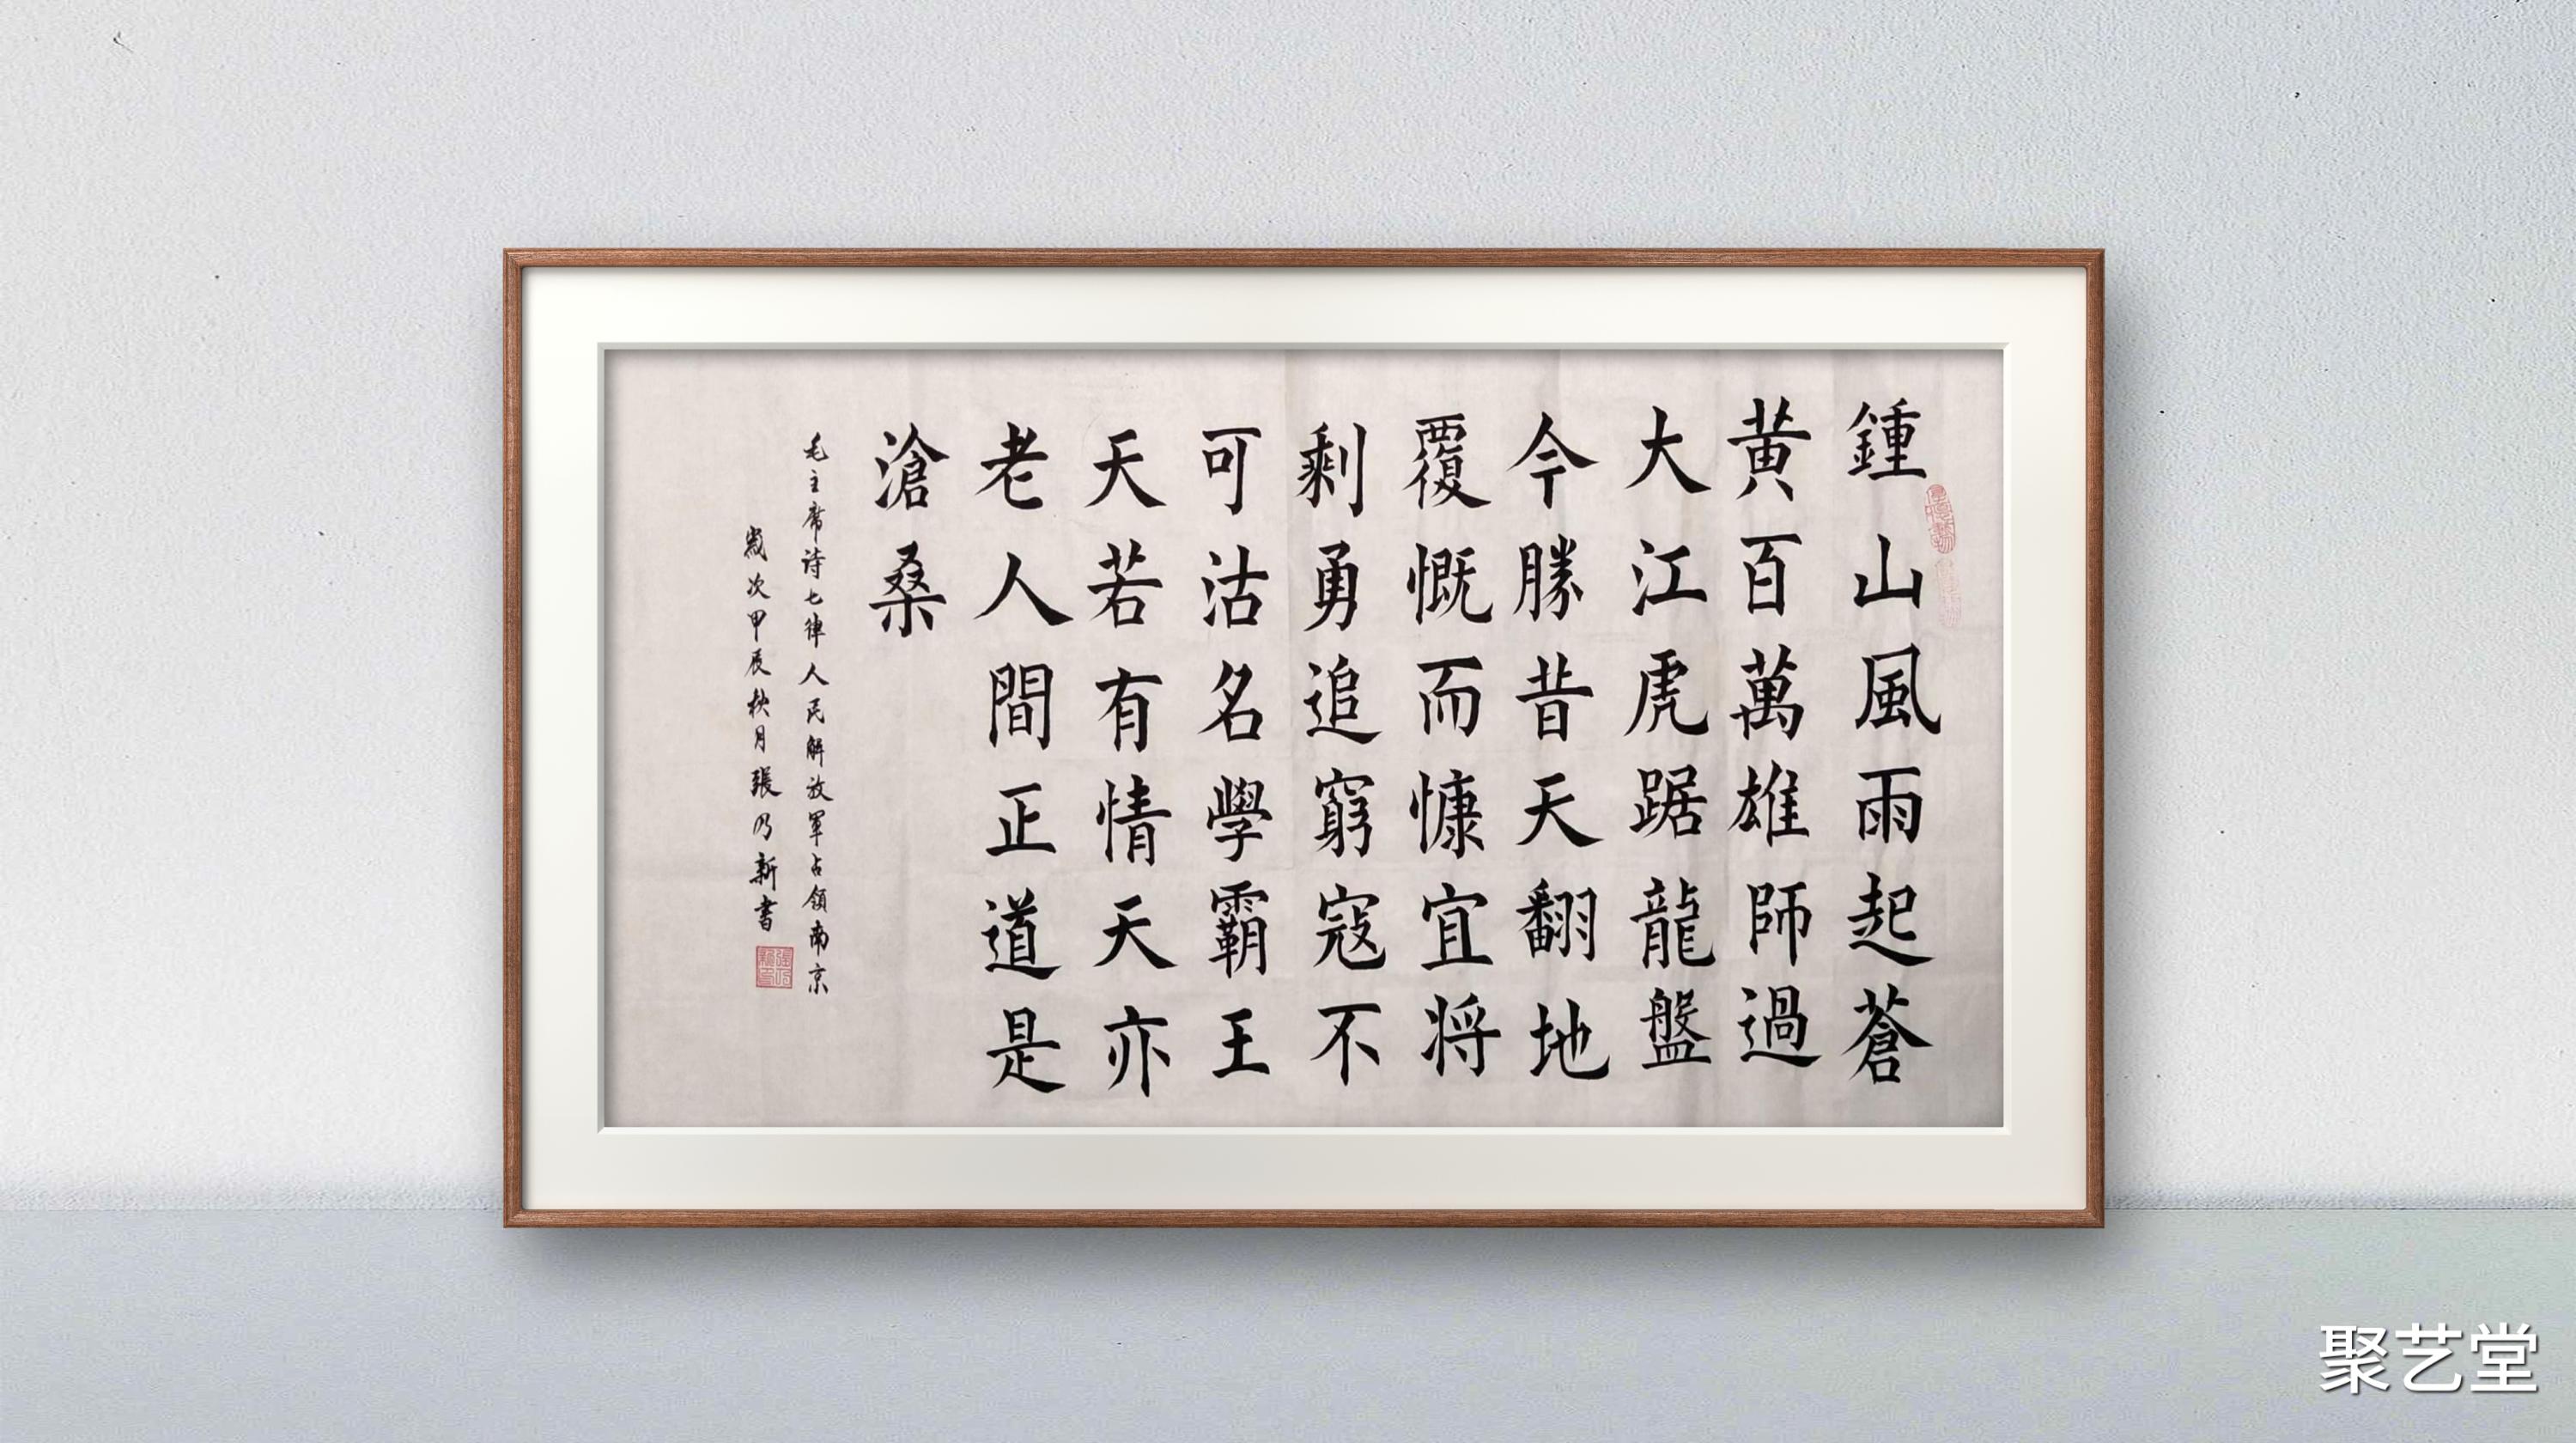 鍾山風雨起蒼
黄百萬雄師過
大江虎踞龍盤
今勝昔天翻地
覆慨而慷宜将
剩勇追窮寇不
可沽名學霸王
天若有情天亦
老人間正道是
滄桑
毛主席诗七律人民解放軍占领南京
歲次甲辰秋月張乃新書
聚艺堂